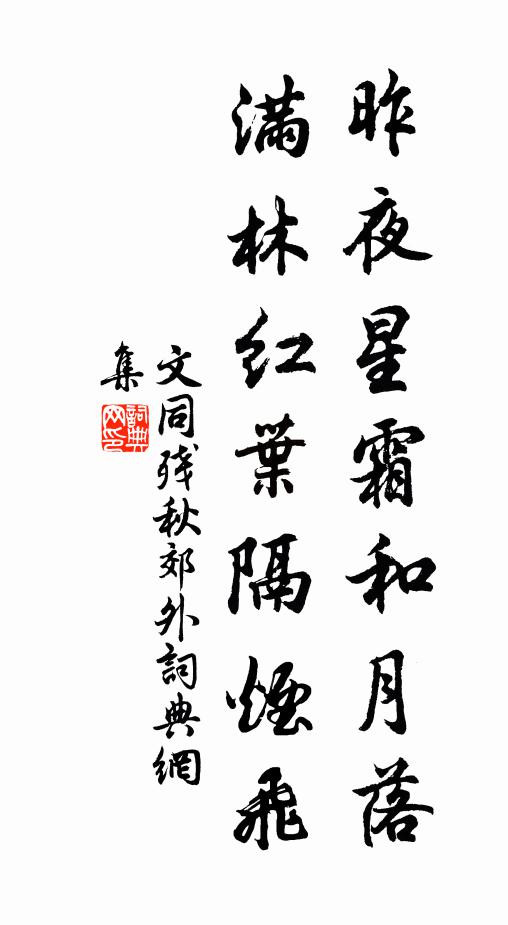 昨夜星霜和月落
滿林紅葉隔煙飛
文同残秋郊外詞典網
集
詞典
网印